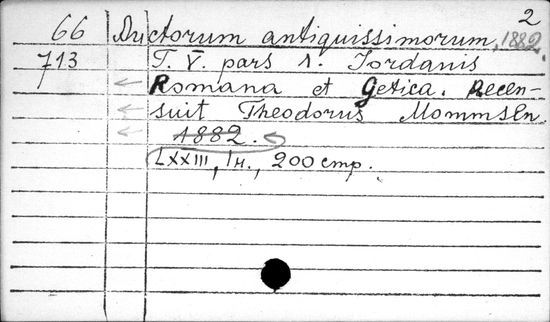 2
66 Auctorum antiquissimorum, 1882.
713 T. V. pars 1. Iordanis
Romana et Getica. Recen-
suit Theodorus Mommsen.
1882.
LXXIII, 1н., 200 стр.